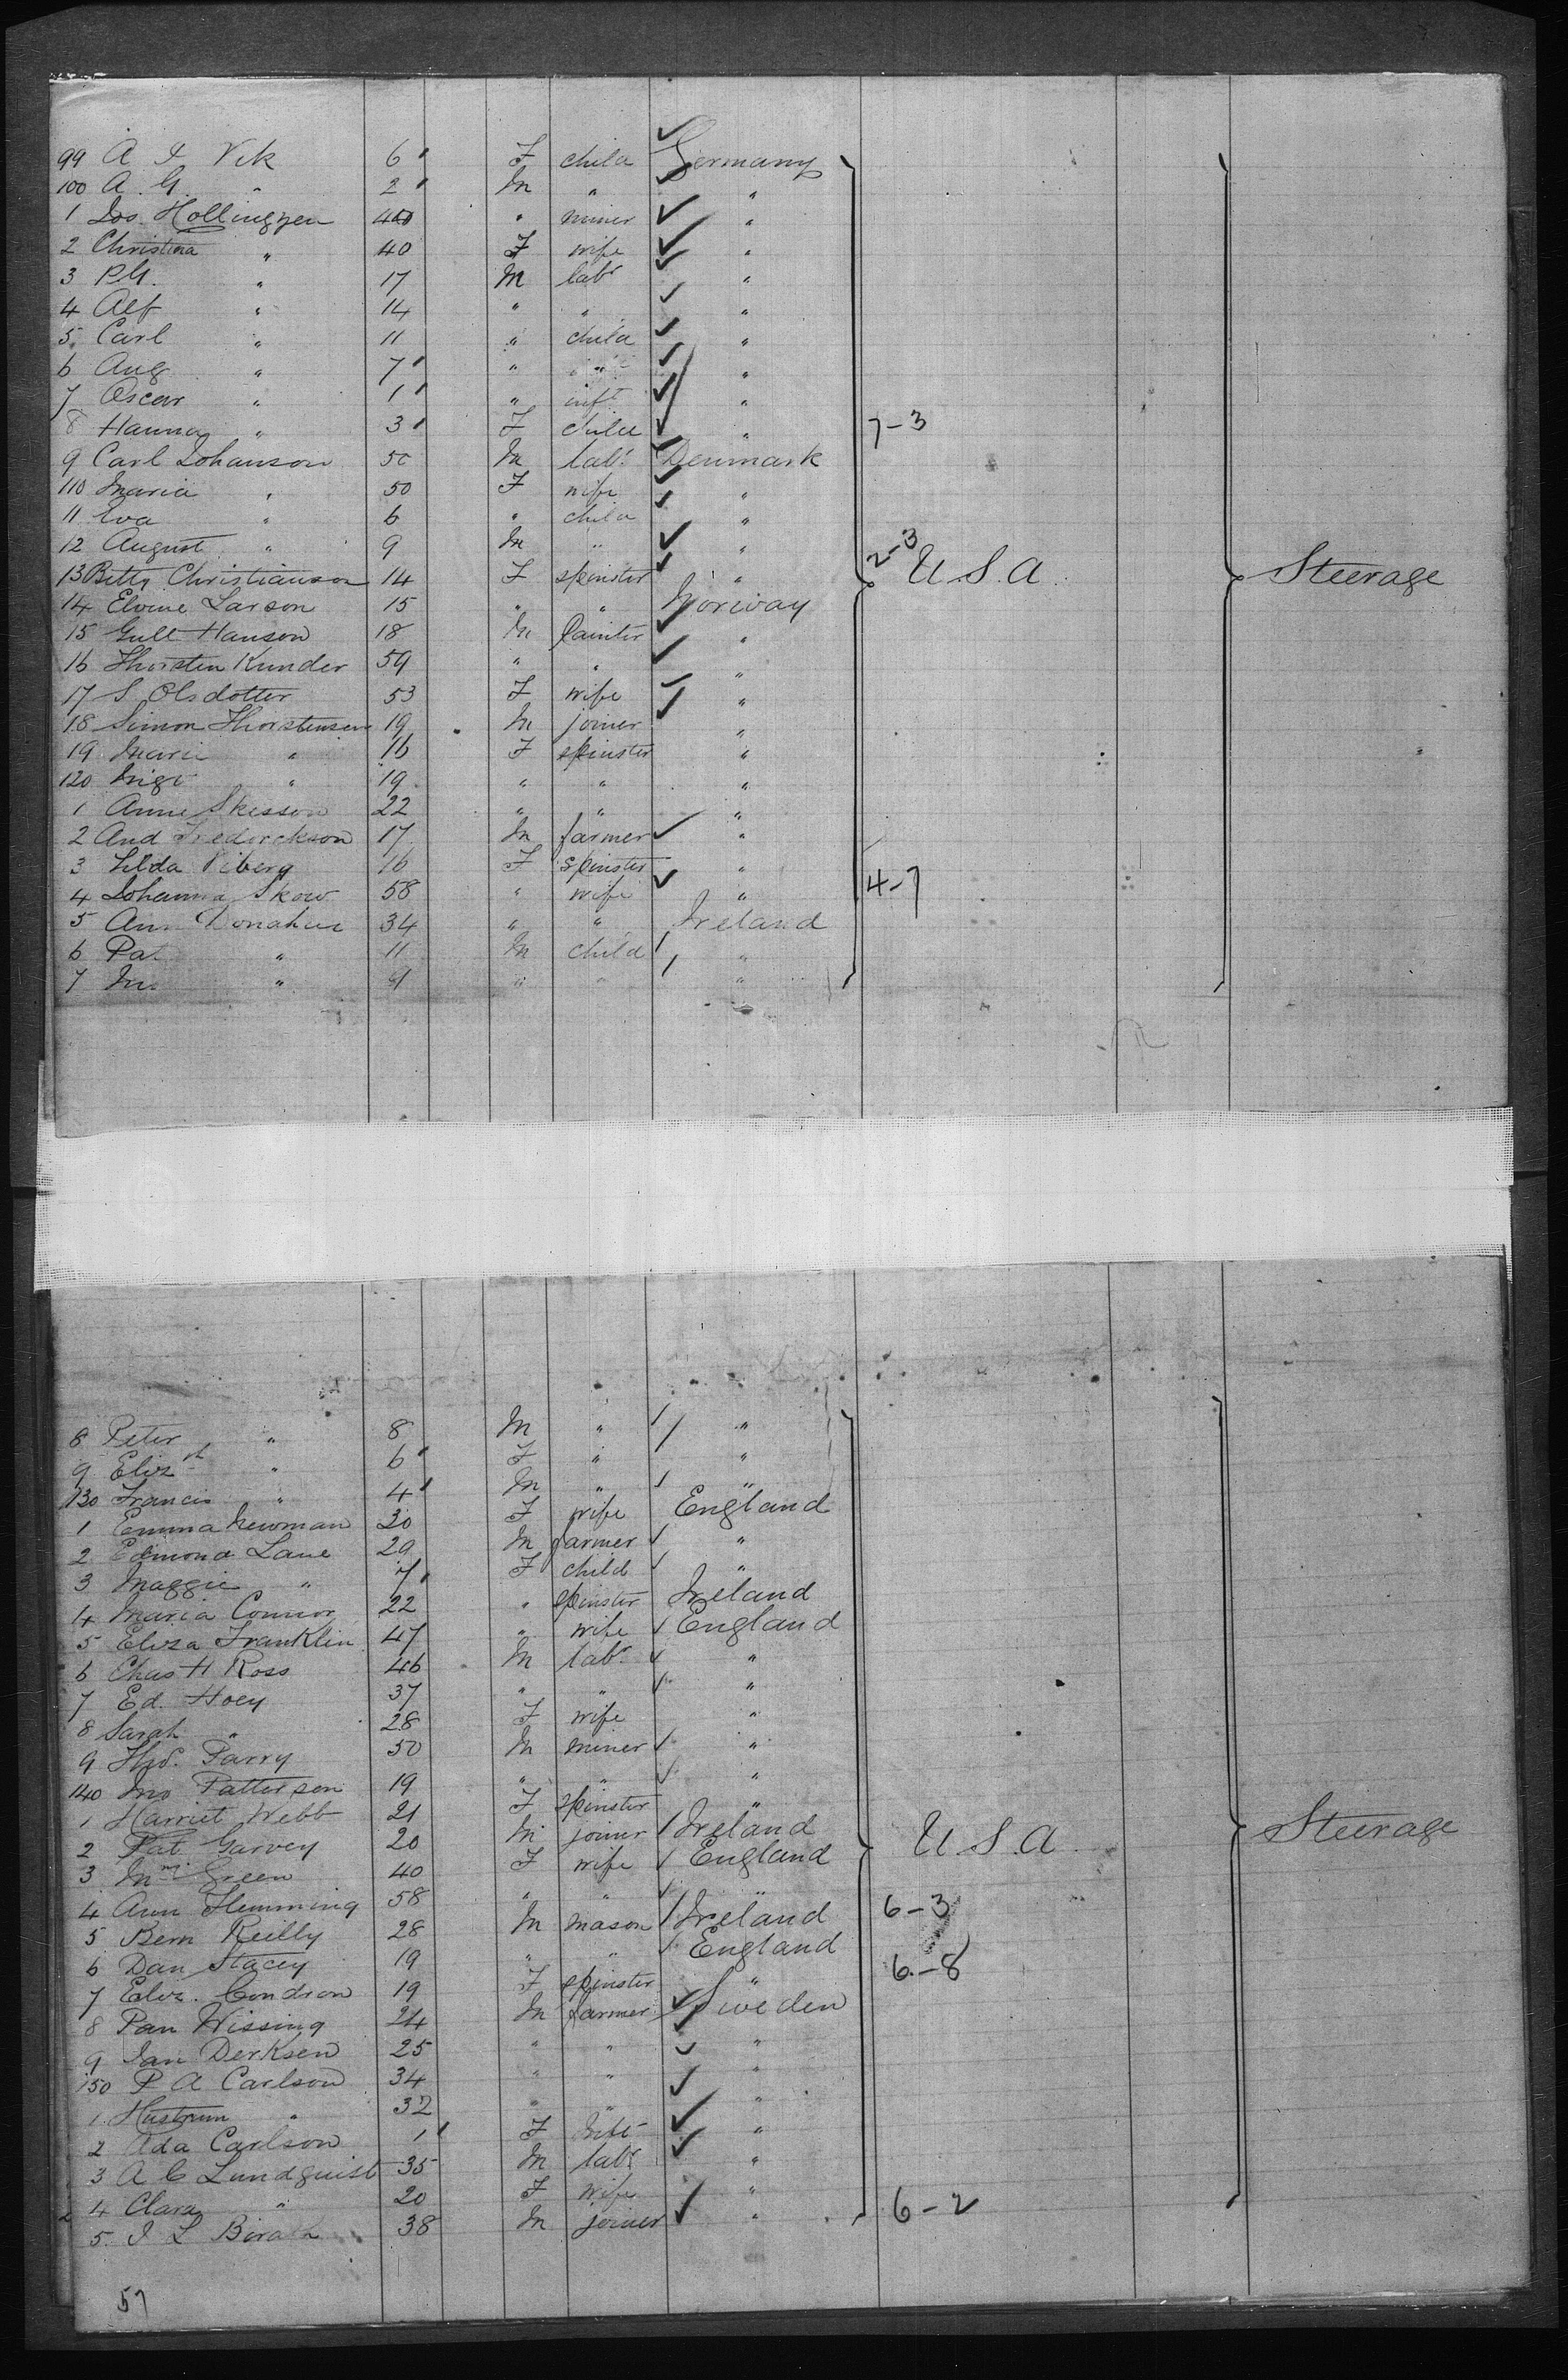 99 A I Vik 6 F child Germany
100 A. G. " 2 M " "
1 Jos. Hollingzen 40 " miner "
2 Christina " 40 F wife "
3 P.G. " 17 M labr "
4 Alf " 14 " " "
5 Carl " 11 " child "
6 Aug " 7 " " "
7 Oscar " 1 " inft "
8 Hanna " 3 F child " 7-3
9 Carl Johanson 50 M labr Denmark
110 Maria " 50 F wife "
11 Eva " 6 " child "
12 August " 9 M " " 2-3
13 Betty Christianson 14 F spinster " U.S.A. Steerage
14 Elvine Larson 15 " " Norway
15 Gull Hanson 18 M Painter "
16 Thorsten Kunder 59 " " "
17 S. Olsdotter 53 F wife "
18 Simon Thorstensen 19 M joiner "
19 Mari " 16 F spinster "
120 " 19 " " "
1 Anne Skesson 22 " " "
2 And Frederckson 17 M farmer "
3 Hilda Viberg 16 F spinster "
4 Johanna Skow 58 " wife " 4-7
5 Ann Donahue 34 " " Ireland
6 Pat " 11 M child "
7 Jno " 9 " " "
8 Peter " 8 M " "
9 Elizth " 6 F " "
130 Francis " 4 M " "
1 Emma Newman 30 F wife England
2 Edmond Lane 29 M farmer "
3 Maggie " 7 F child "
4 Maria Connor 22 " spinster Ireland
5 Eliza Franklin 47 " wife England
6 Chas H Ross 46 M labr "
7 Ed. Hoey 37 " " "
8 Sarah " 28 F wife "
9 Thos. Parry 50 M miner "
140 Jno Patterson 19 " " "
1 Harriet Webb 21 F spinster "
2 Pat Garvey 20 M joiner Ireland U.S.A. Steerage
3 Green 40 F wife England
4 Ann Flemming 58 " " " 6-3
5 Bern Reilly 28 M mason Ireland
6 Dan Stacey 19 " " England 6-8
7 Eliz. Condron 19 F spinster "
8 Pan Wissing 24 M farmer Sweden
9 Jan Derksen 25 " " "
150 P A Carlson 34 " " "
1 Hustrum " 32 " " "
2 Ada Carlson 1 F Inft "
3 A C Lundquist 35 M labr "
4 Clara " 20 F wife "
5 J L 38 M joiner " 6-2
57